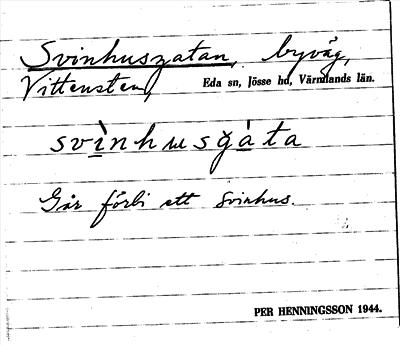 Svinhusgatan, byväg,
Vittensten, Eda sn, Jösse hd, Värmlands län.
svì̱nhusg̀àta
Går förbi ett svinhus.
PER HENNINGSSON 1944.